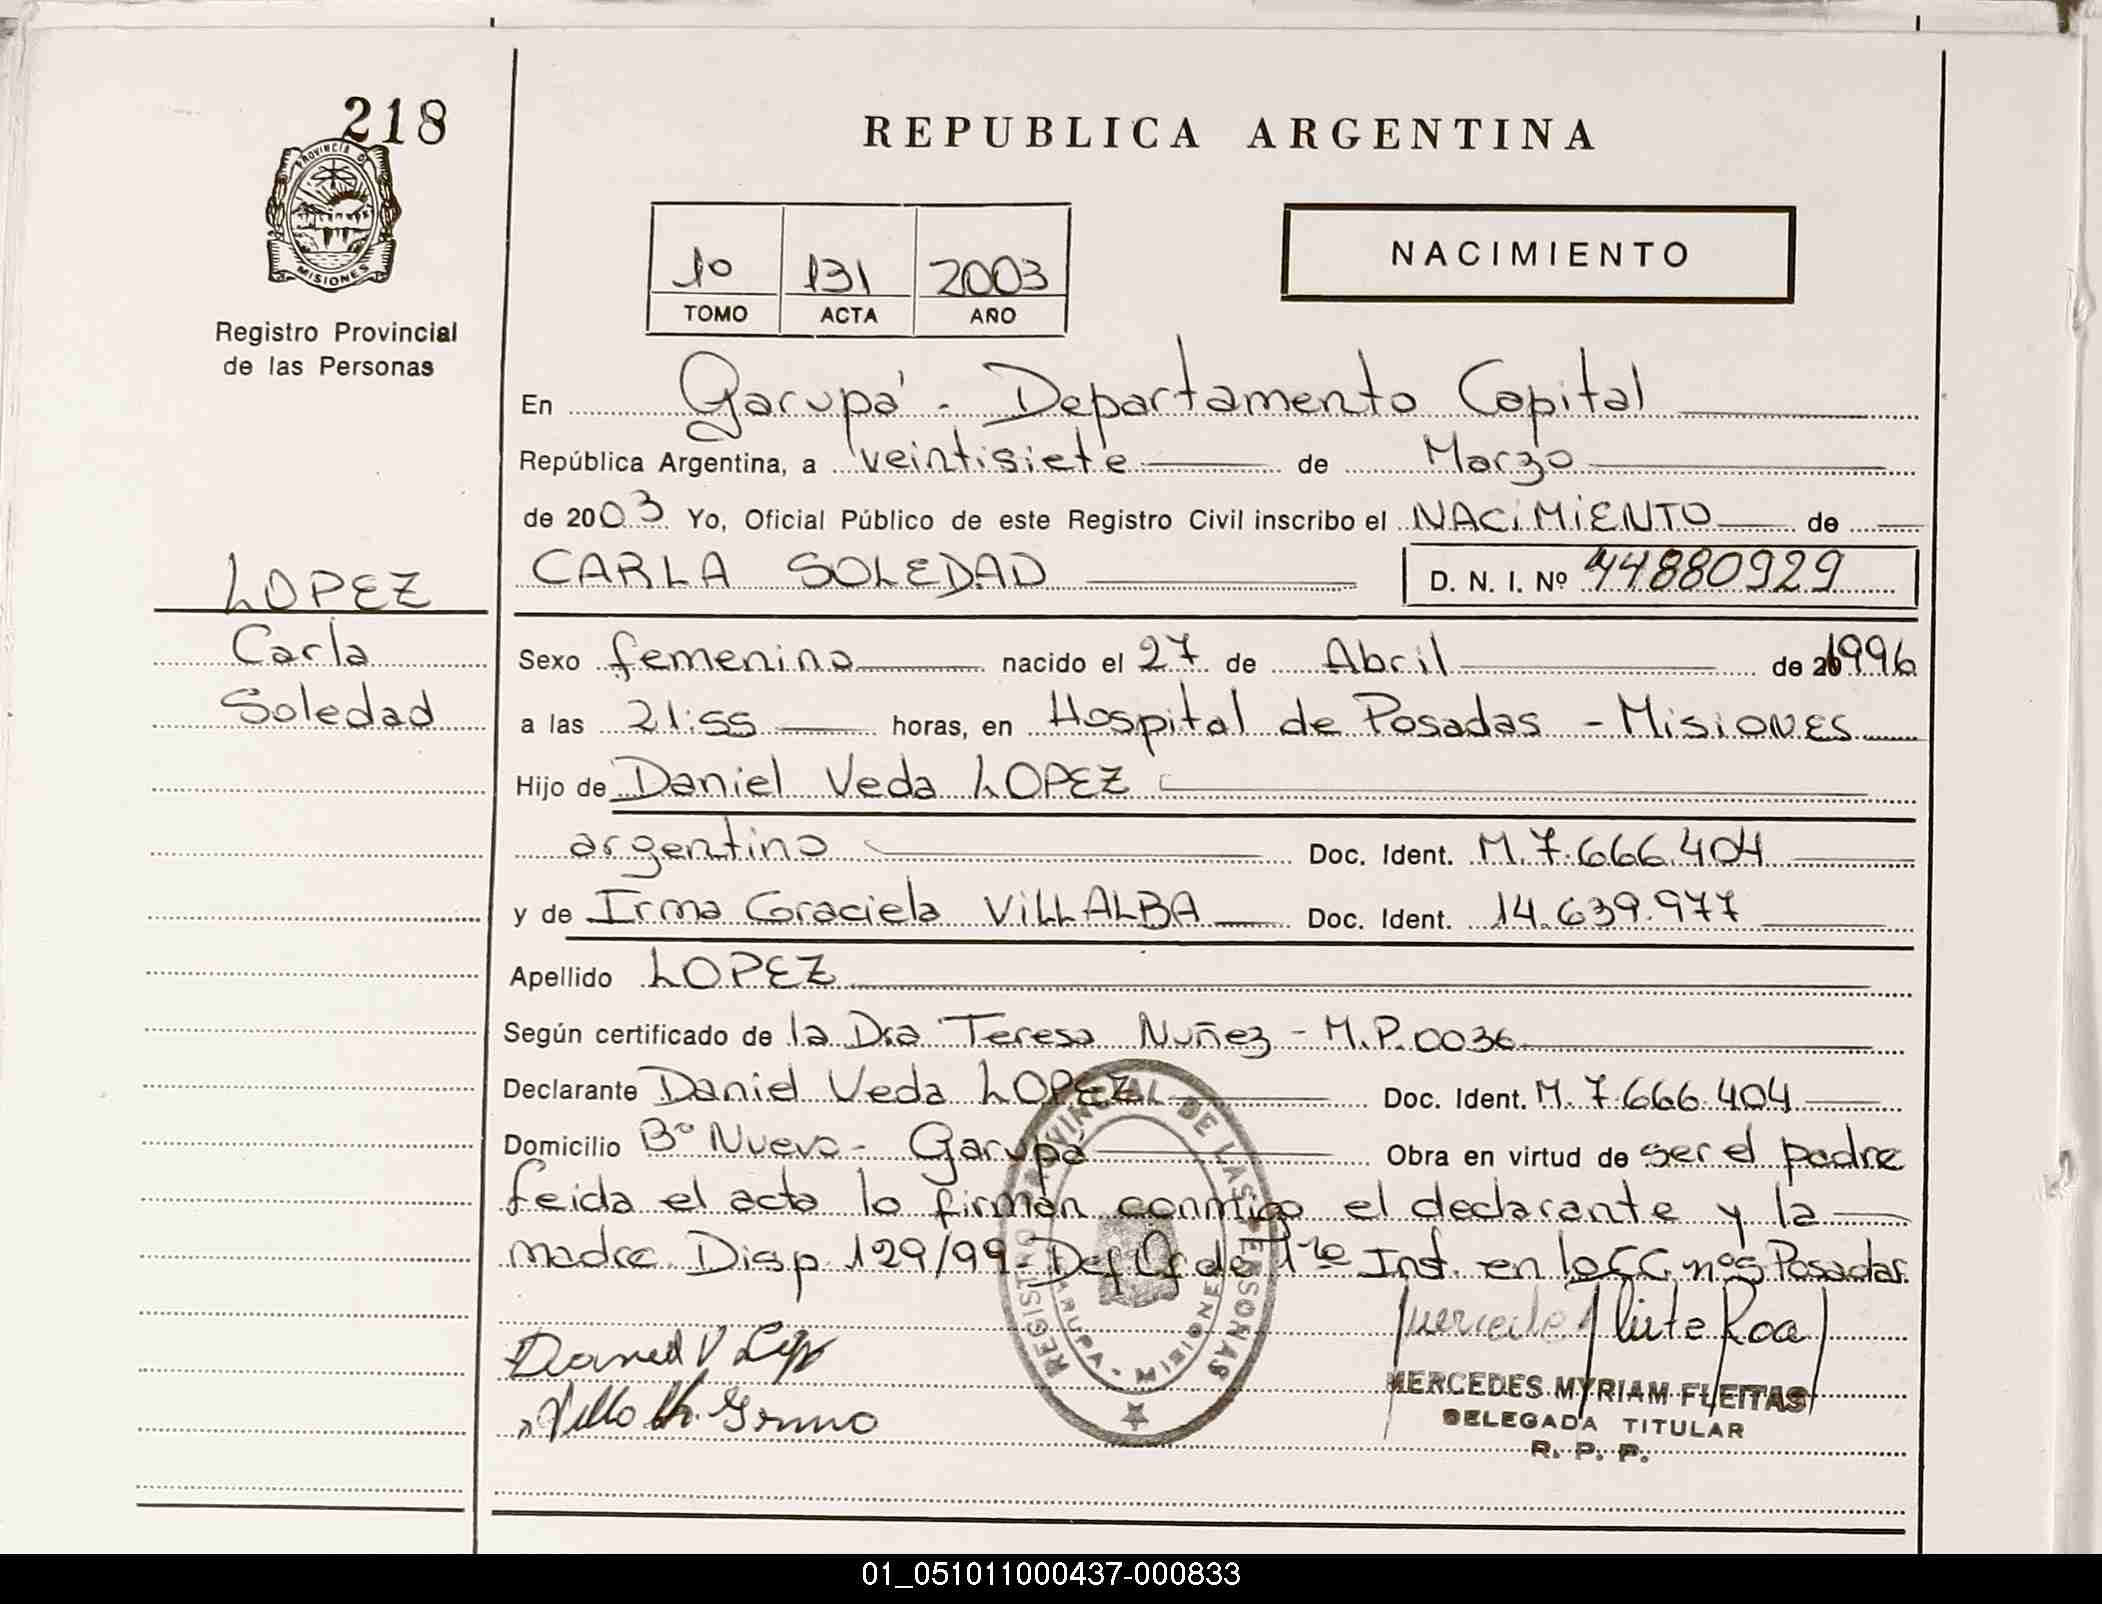 218
PROVINCIA DE
MISIONES
Registro Provincial
de las Personas
REPUBLICA ARGENTINA
1º 131 2003
TOMO ACTA AÑO
NACIMIENTO
En Garupá - Departamento Capital
República Argentina, a veintisiete de Marzo
de 2003 Yo, Oficial Público de este Registro Civil inscribo el NACiMiENTO de
LOPEZ CARLA SOLEDAD D. N. I. Nº 44880929
Carla Sexo femenino nacido el 27 de Abril de 1996
Soledad a las 21:55 horas, en Hospital de Posadas - MisiONES
Hijo de Daniel Veda LOPEZ
argentino Doc. Ident. M. 7.666.404
y de Irma Graciela ViLLALBA Doc. Ident. 14.639.977
Apellido LOPEZ
Según certificado de la Dra Teresa Nuñez - M.P. 0036
Declarante Daniel Veda LOPEZ Doc. Ident. M. 7.666.404
Domicilio Bº Nuevo - Garupá Obra en virtud de ser el padre
Leida el acta lo firman conmigo el declarante y la
madre. Disp 129/99 - Def Of de 1ra Inst. en lo C.C. nº5 Posadas.
REGISTRO PROVINCIAL DE LAS PERSONAS
GARUPA - MISIONES
Daniel V Lopez
MERCEDES MYRIAM FLEITAS
DELEGADA TITULAR
R. P. P.
01_051011000437-000833